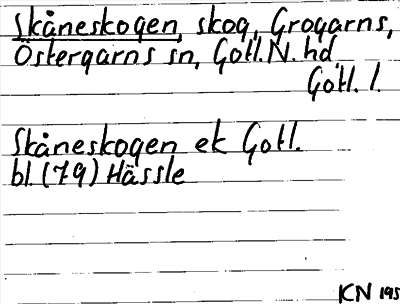 Skåneskogen, skog, Grogarns,
Östergarns sn, Gotl. N. hd,
Gotl. l.
Skåneskogen ek Gotl.
bl. (79) Hässle
KN 195